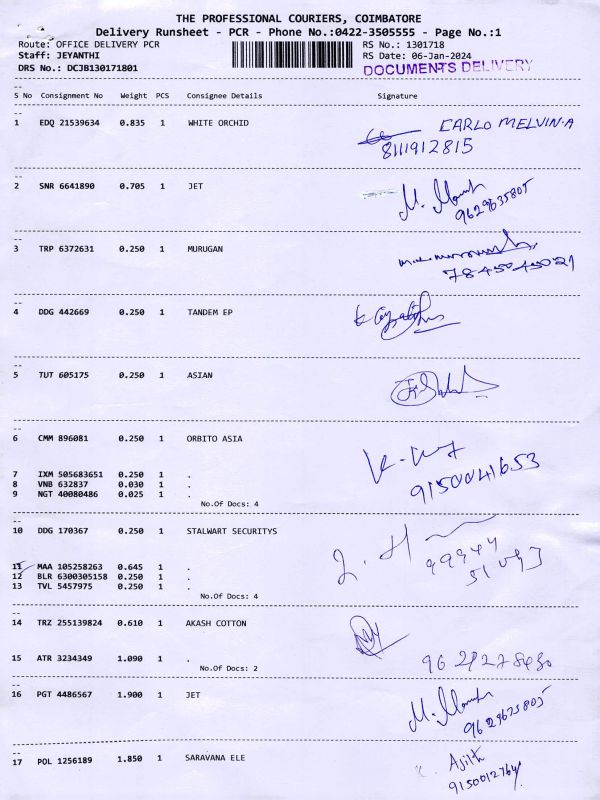 THE PROFESSIONAL COURIERS, COIMBATORE
Delivery Runsheet - PCR - Phone No.:0422-3505555 - Page No.:1
Route: OFFICE DELIVERY PCR RS No.: 1301718
Staff: JEYANTHI RS Date: 06-Jan-2024
DRS No.: DCJB130171801 DOCUMENTS DELIVERY
S No Consignment No Weight PCS Consignee Details Signature
1 EDQ 21539634 0.835 1 WHITE ORCHID CARLO MELVIN.A
8111912815
2 SNR 6641890 0.705 1 JET
9629635805
3 TRP 6372631 0.250 1 MURUGAN
4 DDG 442669 0.250 1 TANDEM EP
5 TUT 605175 0.250 1 ASIAN
6 CMM 896081 0.250 1 ORBITO ASIA
7 IXM 505683651 0.250 1 .
8 VNB 632837 0.030 1 .
9 NGT 40080486 0.025 1 . 9150041653
No.Of Docs: 4
10 DDG 170367 0.250 1 STALWART SECURITYS
11 MAA 105258263 0.645 1 .
12 BLR 6300305158 0.250 1 .
13 TVL 5457975 0.250 1 .
No.Of Docs: 4
14 TRZ 255139824 0.610 1 AKASH COTTON
15 ATR 3234349 1.090 1 .
No.Of Docs: 2
16 PGT 4486567 1.900 1 JET
17 POL 1256189 1.850 1 SARAVANA ELE Ajith
9150012764